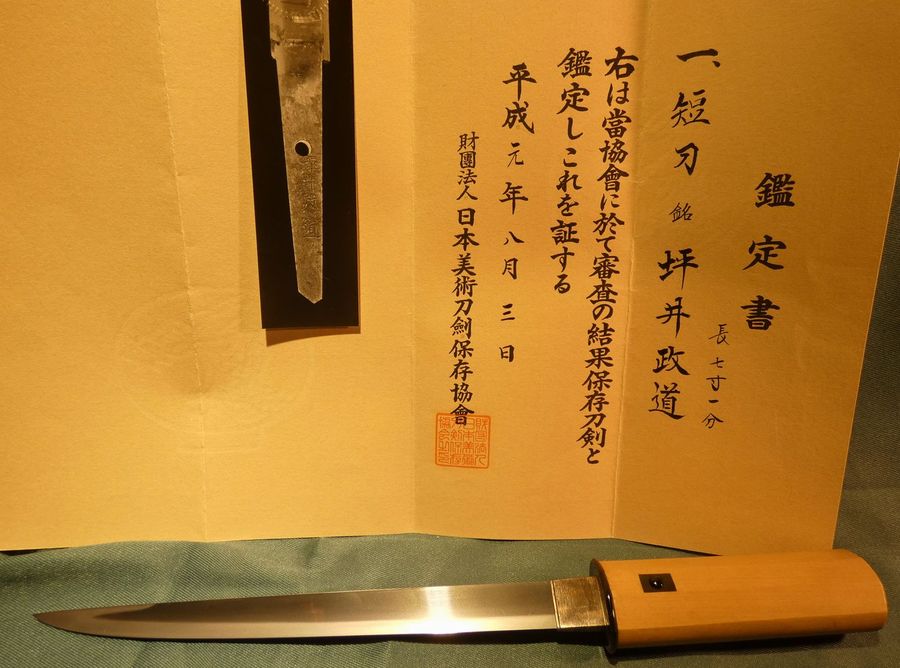 鑑定書
一、短刀 銘 坪井政道
長七寸一分
右は當協會に於て審査の結果保存刀剣と
鑑定しこれを証する
平成元年八月三日
財團法人日本美術刀劍保存協會